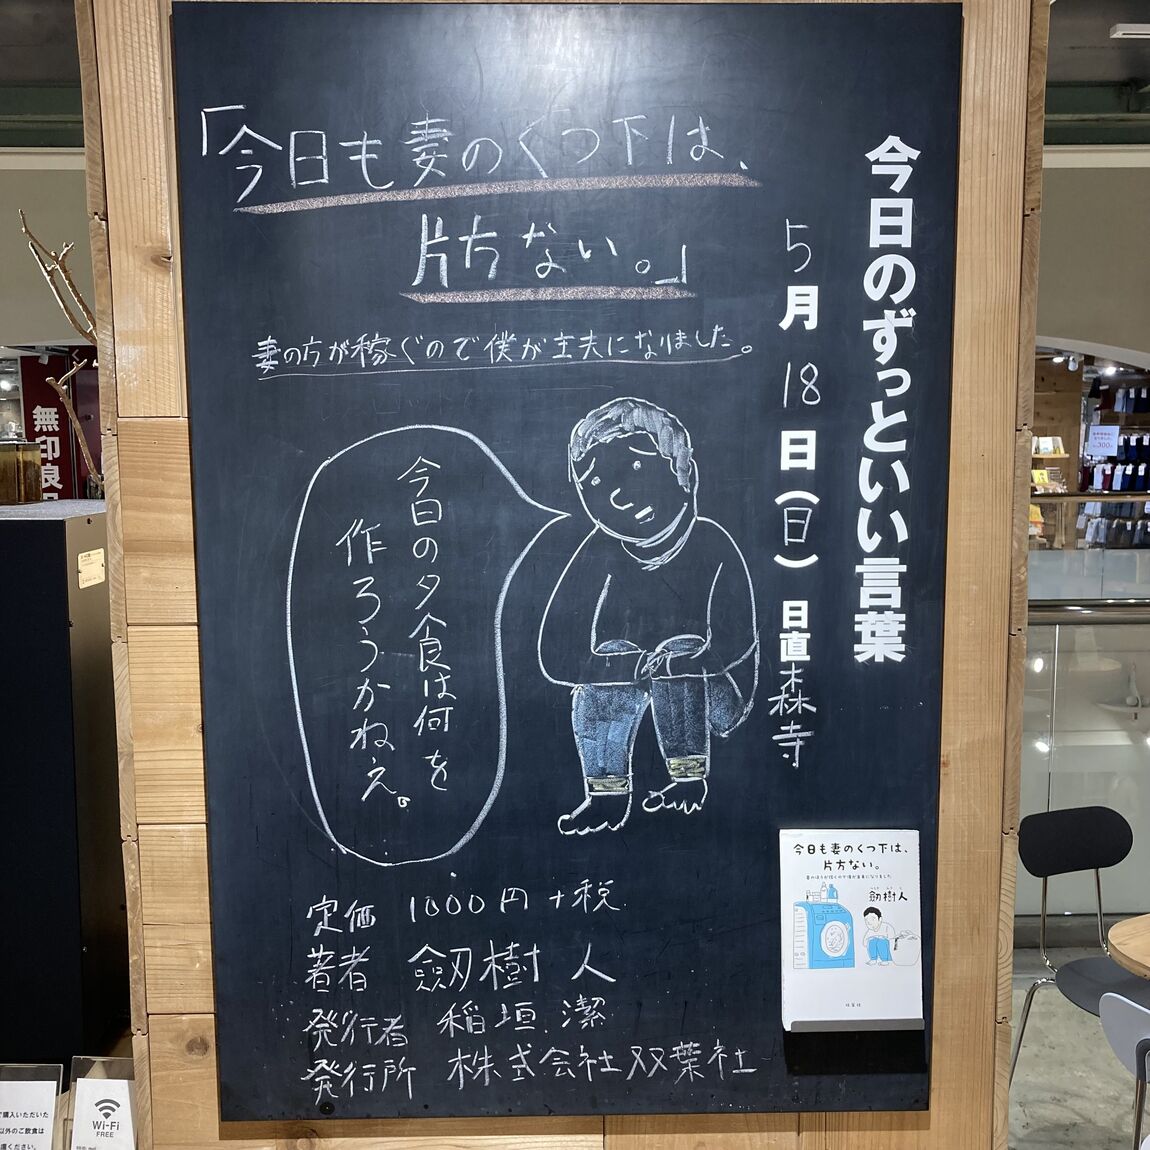 今日のずっといい言葉
5月18日(日) 日直 森寺
「今日も妻のくつ下は、
片方ない。」
妻の方が稼ぐので僕が主夫になりました。
今日の夕食は何を
作ろうかねぇ。
定価 1000円+税
著者 劔樹人
発行者 稲垣 潔
発行所 株式会社双葉社
今日も妻のくつ下は、
片方ない。
妻のほうが稼ぐので僕が主夫になりました
劔樹人
双葉社
無印良
Wi-Fi
FREE
で購入いただいた
以外のご飲食は
300